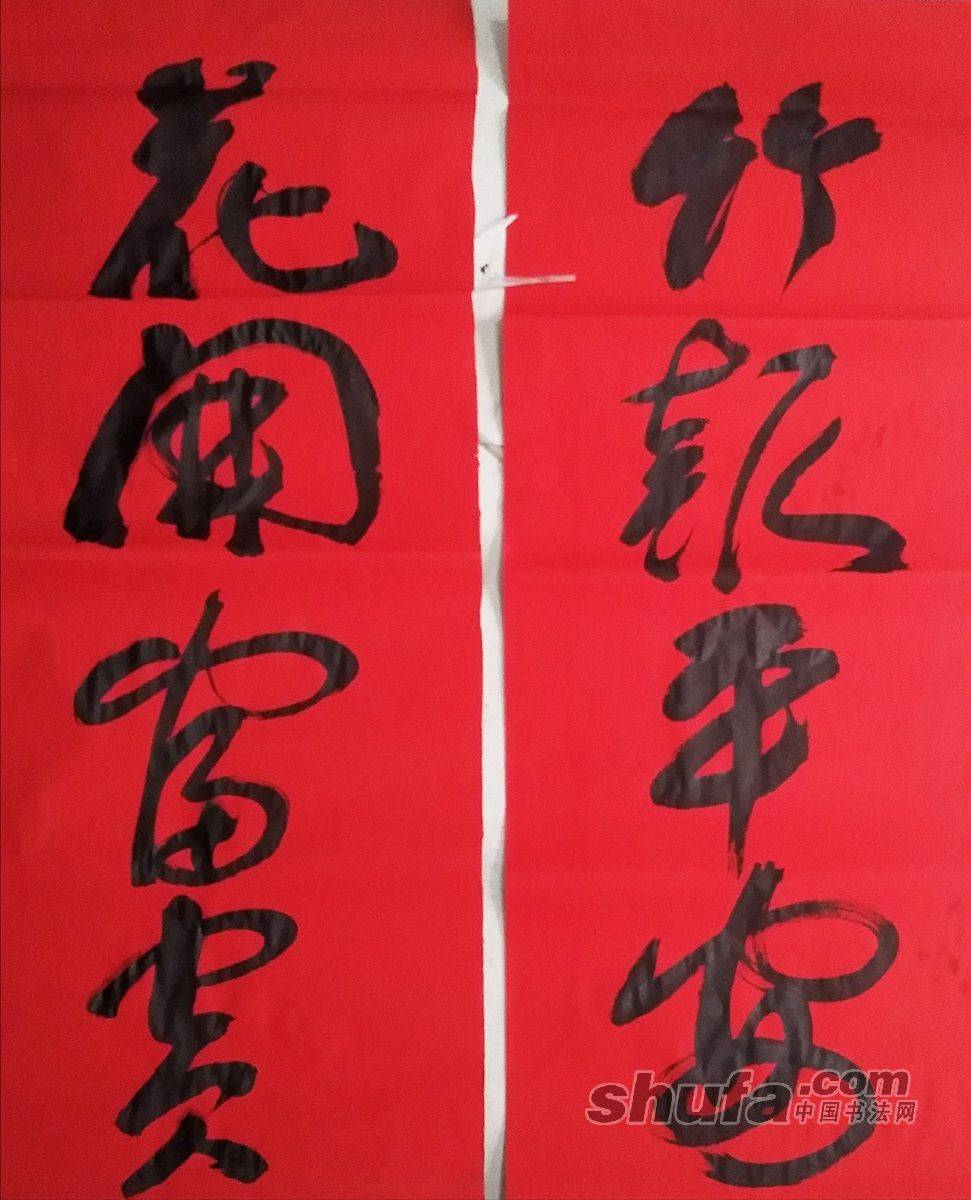 竹報平安
花開富貴
shufa.com
中国书法网